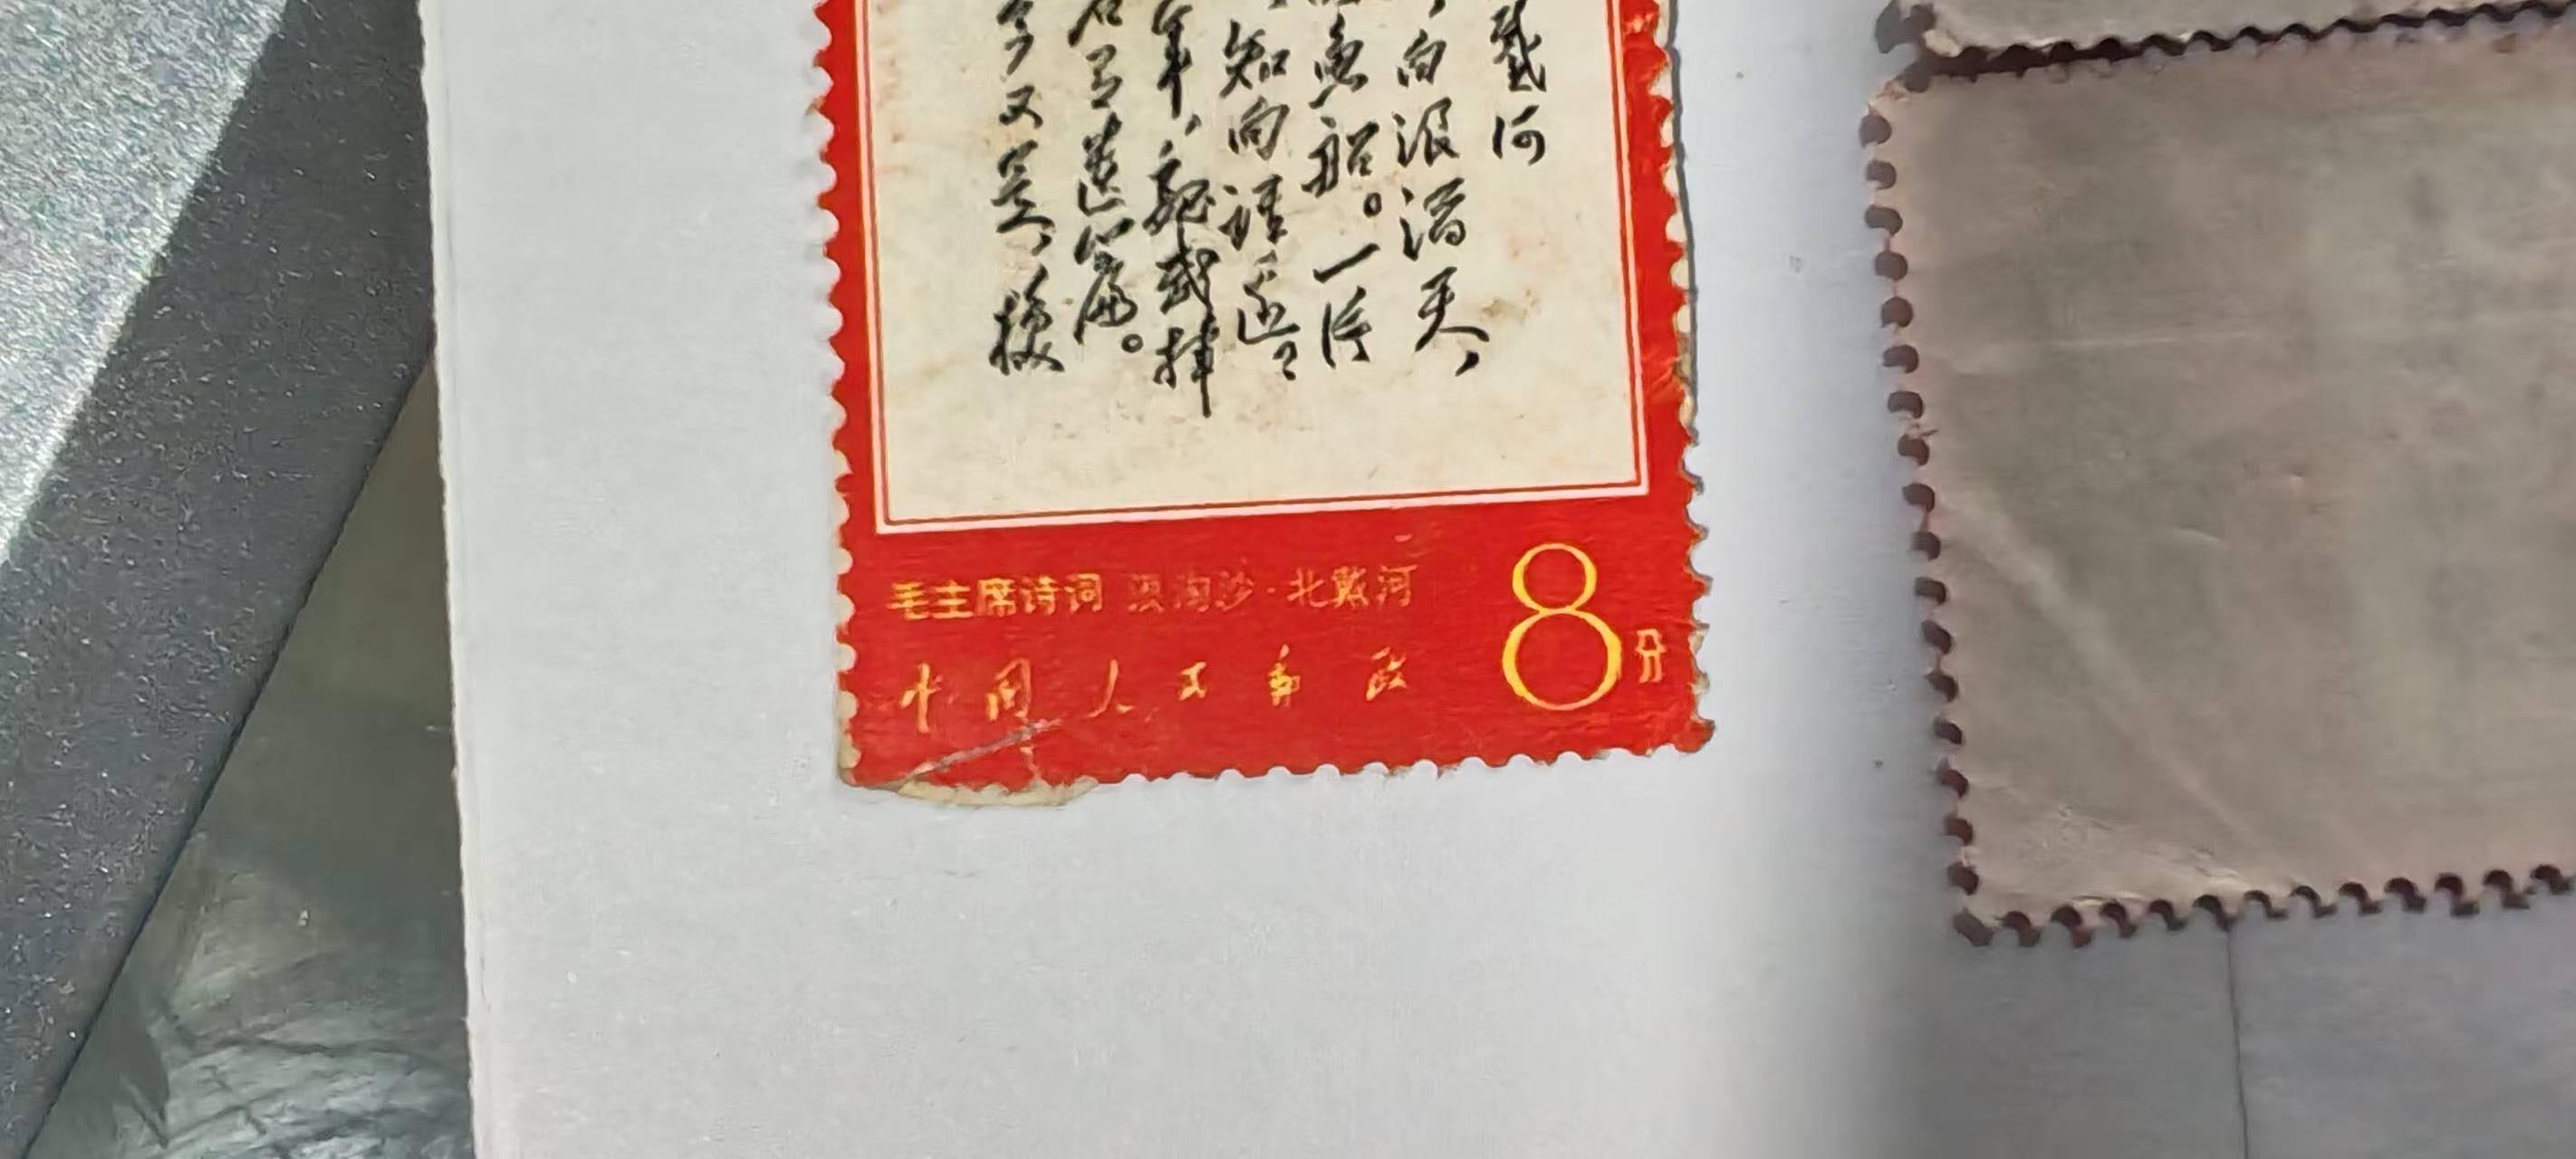 戴河
白浪滔天，
鱼船。一片
知向谁边？
年，魏武挥
石有遗篇。
今又是，换
毛主席诗词 浪淘沙·北戴河
中国人民邮政
8分